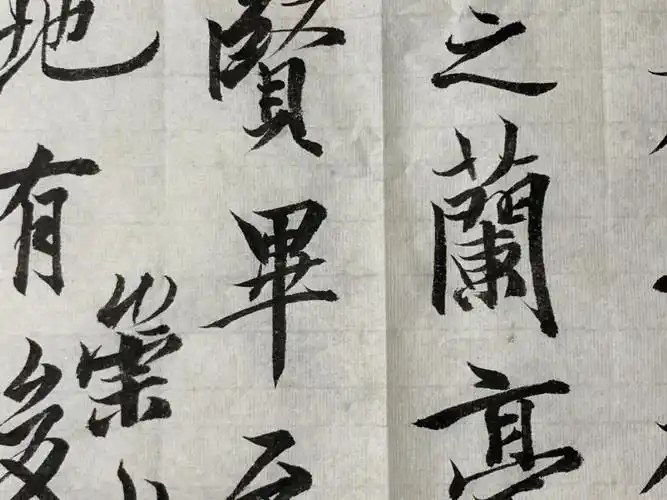 之蘭亭
賢畢至
地有
崇